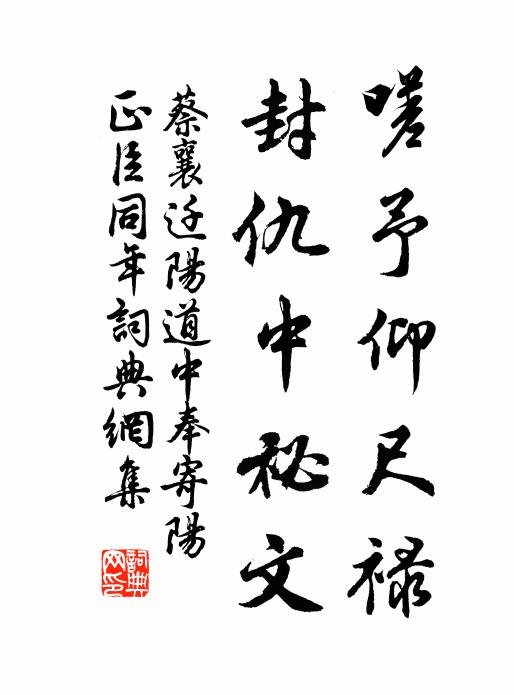 嗟予仰尺禄
封仇中秘文
蔡襄迁陽道中奉寄陽
正臣同年詞典網集
詞典网印